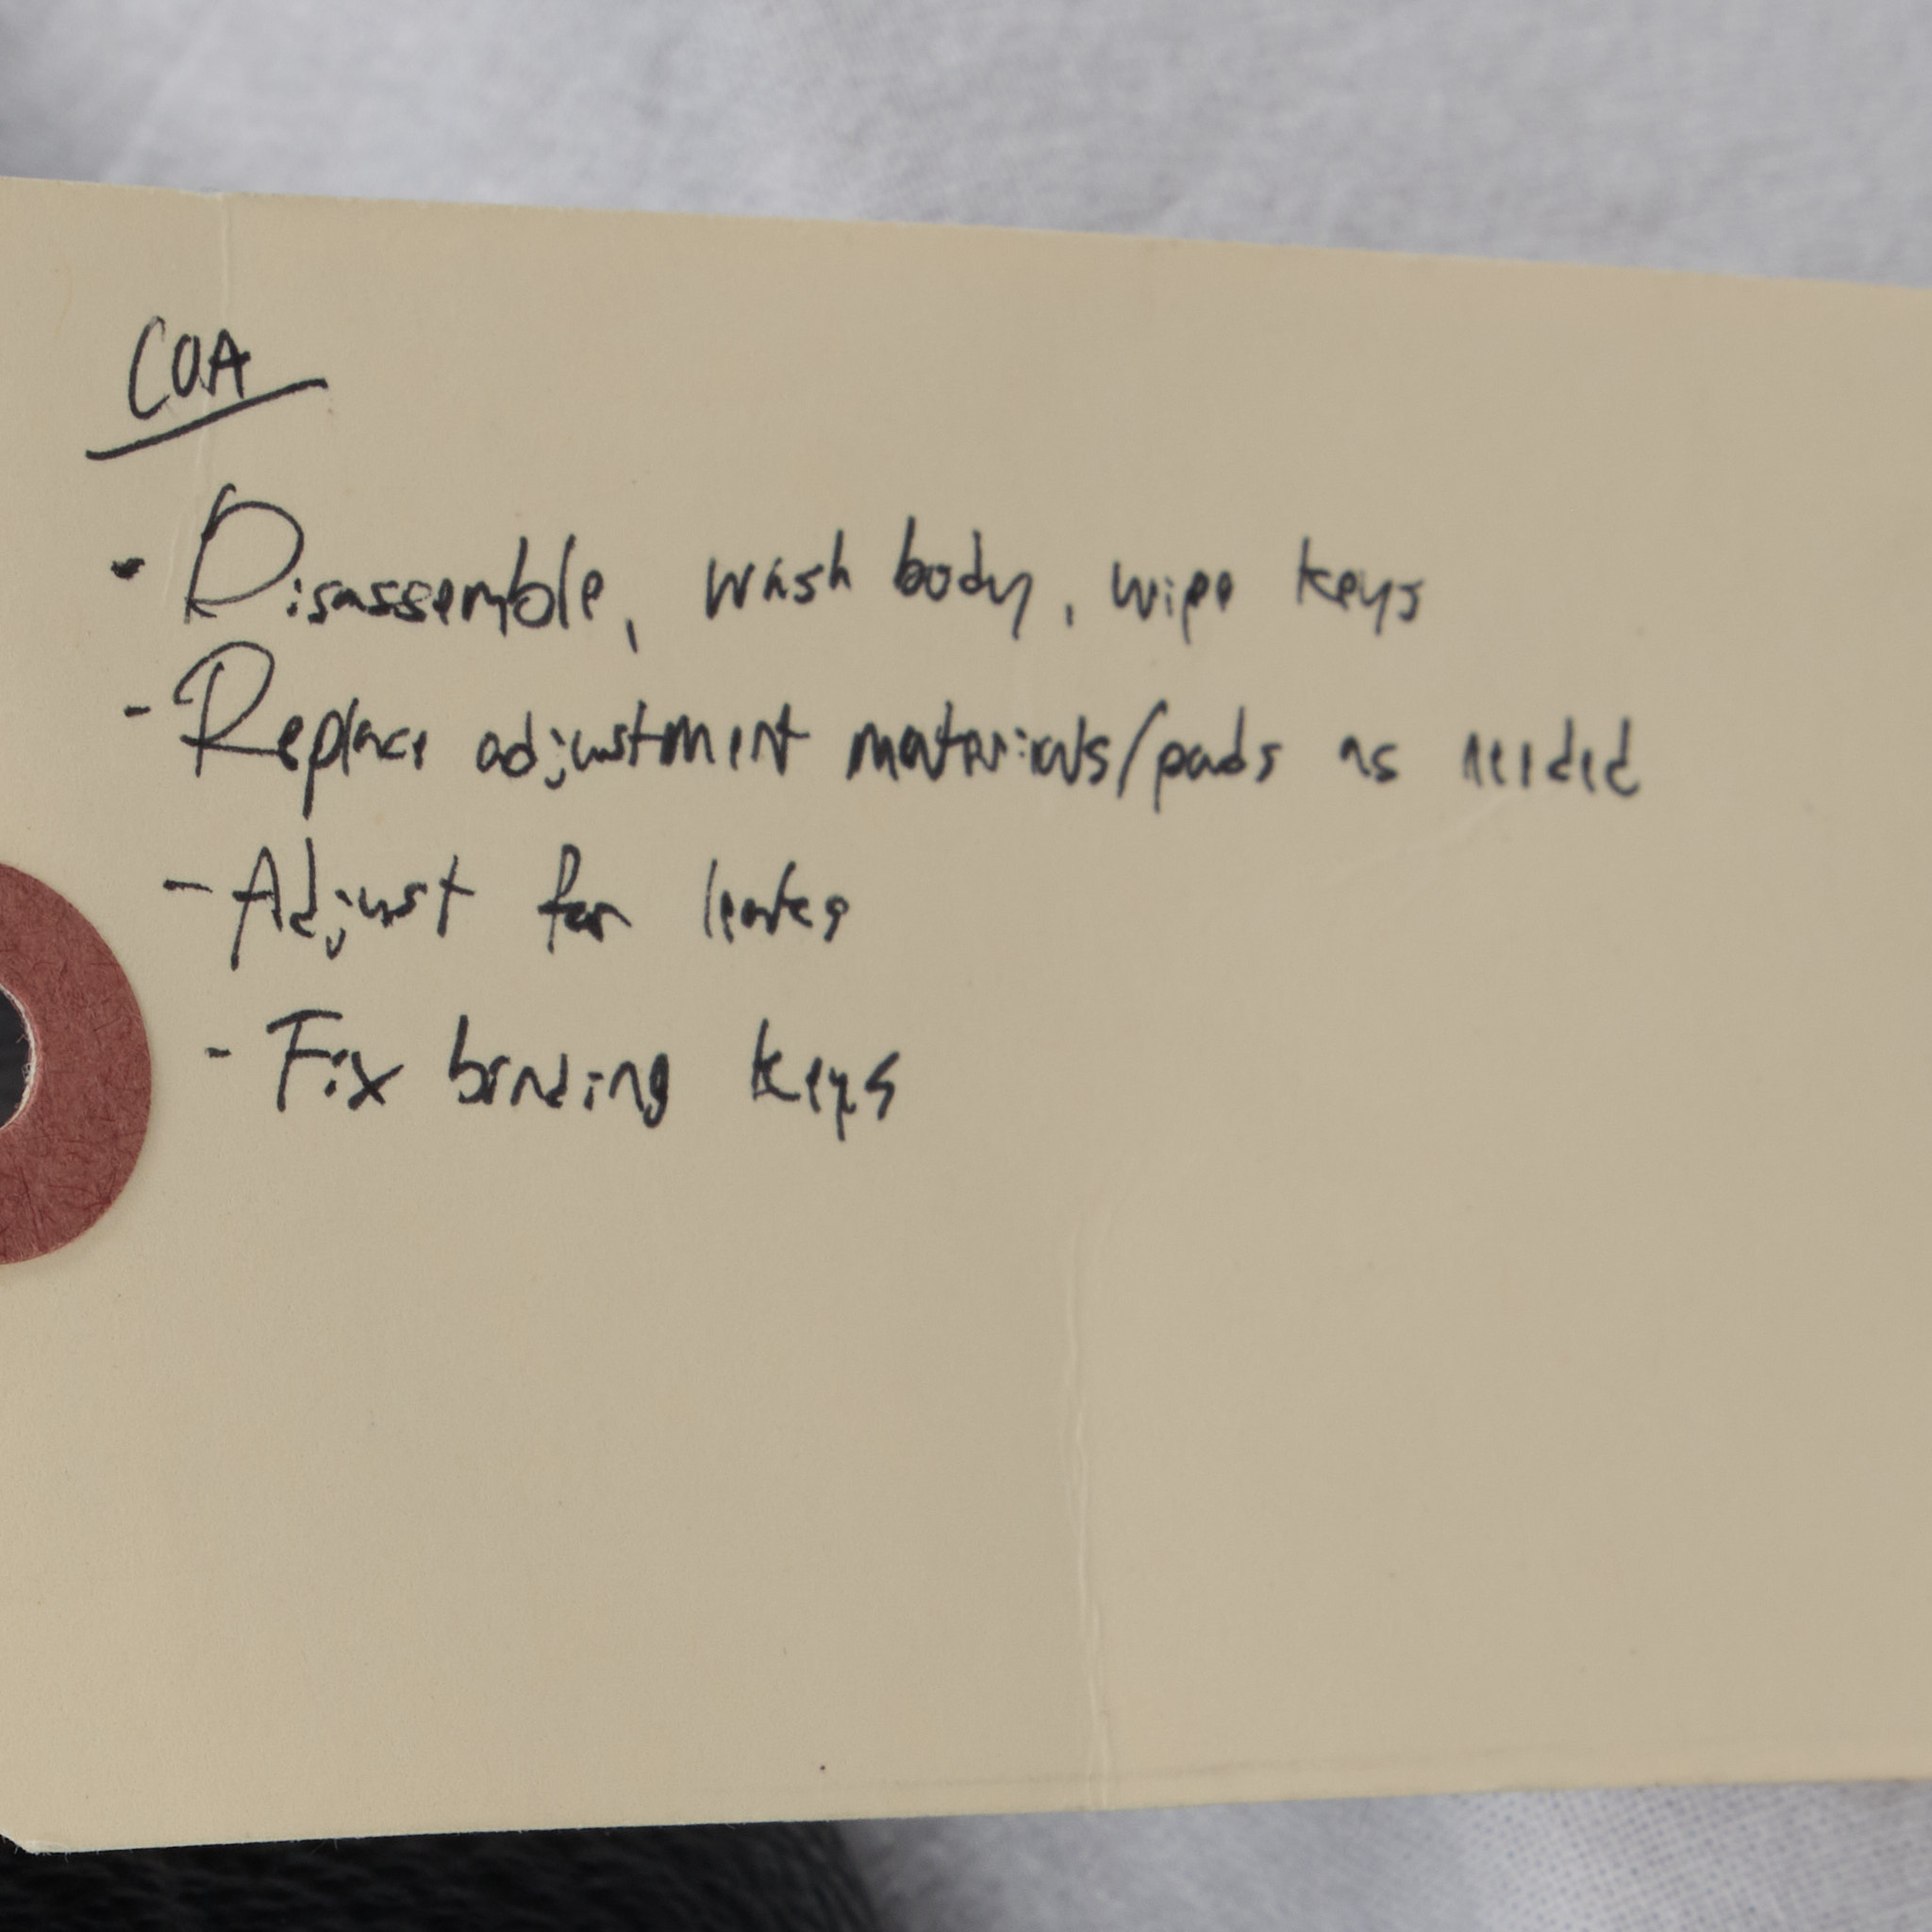 COA
- Disassemble, wash body, wipe keys
- Replace adjustment materials/pads as needed
- Adjust for leaks
- Fix binding keys